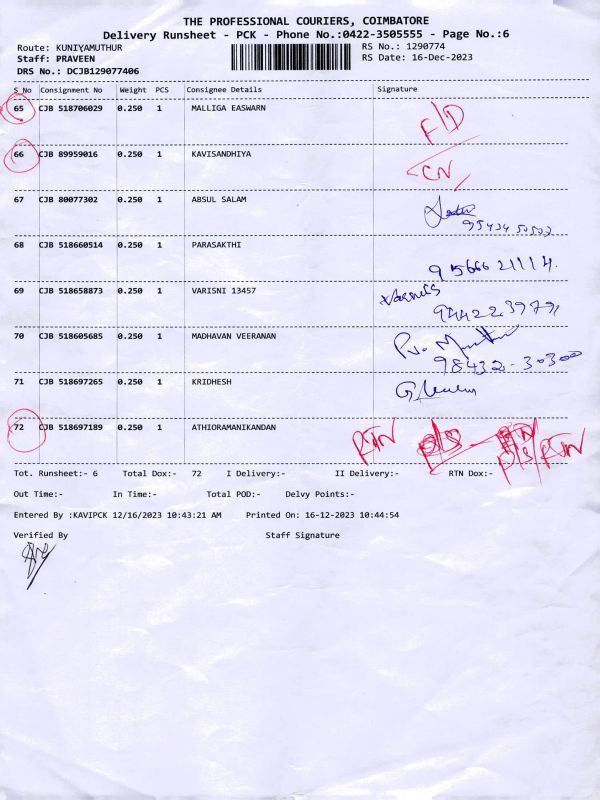 THE PROFESSIONAL COURIERS, COIMBATORE
Delivery Runsheet - PCK - Phone No.:0422-3505555 - Page No.:6
Route: KUNIYAMUTHUR RS No.: 1290774
Staff: PRAVEEN RS Date: 16-Dec-2023
DRS No.: DCJB129077406
S No Consignment No Weight PCS Consignee Details Signature
65 CJB 518706029 0.250 1 MALLIGA EASWARN F/D
66 CJB 89959016 0.250 1 KAVISANDHIYA CN
67 CJB 80077302 0.250 1 ABSUL SALAM
68 CJB 518660514 0.250 1 PARASAKTHI 9566621114.
69 CJB 518658873 0.250 1 VARISNI 13457
70 CJB 518605685 0.250 1 MADHAVAN VEERANAN 98432-30300
71 CJB 518697265 0.250 1 KRIDHESH
72 CJB 518697189 0.250 1 ATHIORAMANIKANDAN RTN D/S RTN
Tot. Runsheet:- 6 Total Dox:- 72 I Delivery:- II Delivery:- RTN Dox:-
Out Time:- In Time:- Total POD:- Delvy Points:-
Entered By :KAVIPCK 12/16/2023 10:43:21 AM Printed On: 16-12-2023 10:44:54
Verified By Staff Signature